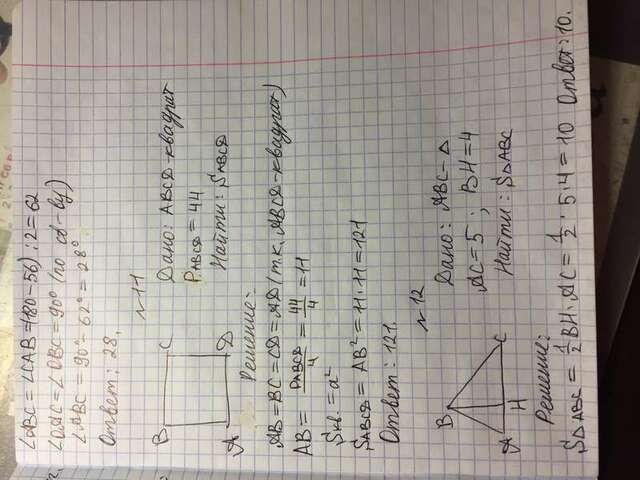 ∠ABC = ∠CAB = (180 - 56) : 2 = 62
∠OAC = ∠OBC = 90° (по св-ву)
∠ABC = 90° - 62° = 28°
Ответ: 28.
№11
B C
A D
Дано: ABCD - квадрат
P ABCD = 44
Найти: S ABCD
Решение:
AB = BC = CD = AD (т.к. ABCD - квадрат)
AB = P ABCD / 4 = 44 / 4 = 11
S кв. = a²
S ABCD = AB² = 11 · 11 = 121
Ответ: 121.
№12
B
A H C
Дано: ABC - △
AC = 5 ; BH = 4
Найти: S △ABC
Решение:
S △ABC = 1/2 BH · AC = 1/2 · 5 · 4 = 10 Ответ: 10.